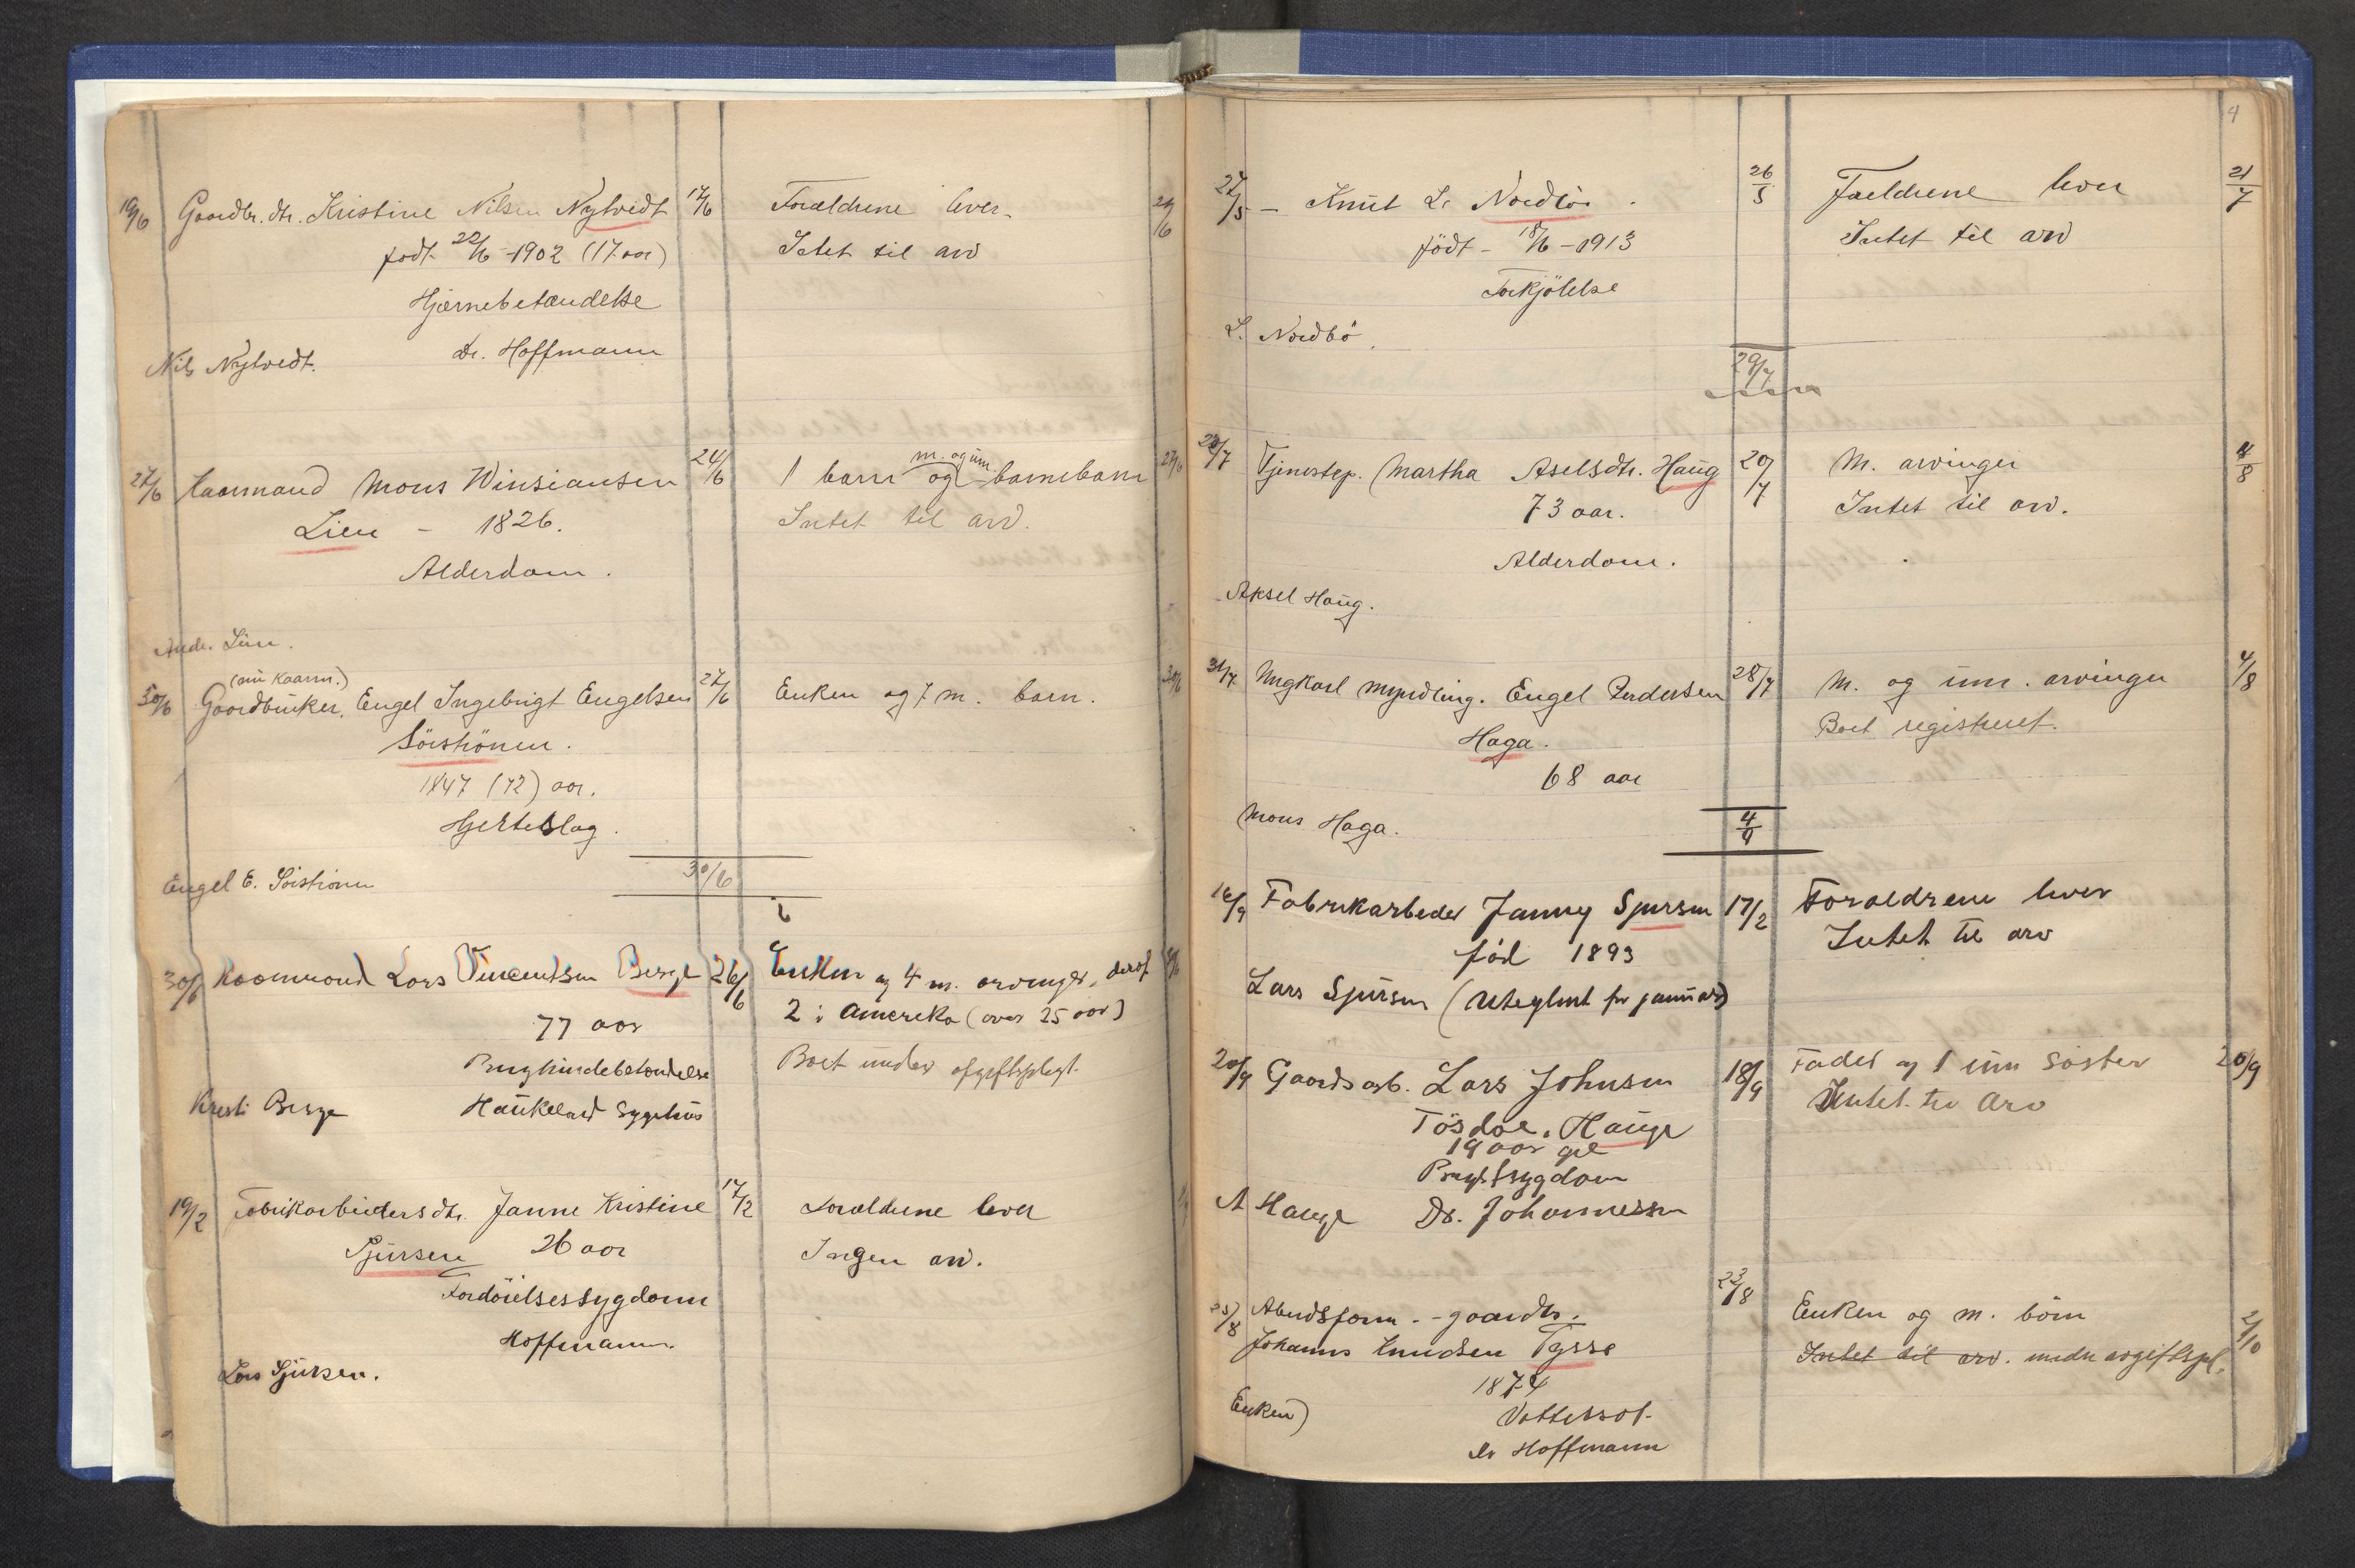 19/6 Gaardbr. dtr. Kristine Nilsen Nytvedt 17/6 Forældrene lever. 24/6
født 22/6 - 1902 (17 aar) Intet til arv
Hjernebetændelse
Nils Nytvedt. Dr. Hoffmann
27/6 Kaarmand Mons Winsiansen 24/6 1 barn og m. og um. barnebarn 27/6
Lien - 1826. Intet til arv.
Alderdom.
Andr. Lien.
(nu kaarm.)
30/6 Gaardbruker. Engel Ingebrigt Engelsen 27/6 Enken og 7 m. barn. 30/6
Söiströnen.
1847 (72) aar.
Hjerteslag.
Engel E. Söiströnen 30/6
6
30/6 Kaarmand Lars Vincentsen Berge 26/6 Enken og 4 m. arvinger, deraf
77 aar 2 i Amerika (over 25 aar)
Brysthindebetændelse Boet under afgiftsplegt.
Kristi Berge Haukeland Sygehus
19/2 Fabrikarbeidersdtr. Janne Kristine 17/2 Forældrene lever
Sjursen 26 aar Ingen arv.
Fordöielsessygdom
Hoffmann.
Lars Sjursen.
4
27/5 - Knut L. Nordbö. 26/5 Foreldrene lever 21/7
födt - 18/6 - 1913 Intet til arv
Forkjölelse
L. Nordbö.
29/7
23/7 Tjenestep. Martha Aselsdtr. Haug 20/7 M. arvinger 4/8
73 aar. Intet til arv.
Alderdom.
Aksel Haug.
31/7 Ungkarl myndling. Engel Andersen 28/7 M. og um. arvinger 4/8
Haga. Boet registreret.
68 aar
Mons Haga. 4/9
16/9 Fabrikarbeder Janny Sjursen 17/2 Foraeldrene lever
fød 1893 Intet til arv
Lars Sjursen (uteglemt for januar)
20/9 Gaardsarb. Lars Johnsen 18/9 Fader og 1 um söster 20/9
Tösdal. Hauge Intet til arv
19 aar gl
Brystsygdom
A Hauge Dr. Johannessen
25/8 Arbeidsform. - gaardbr. 23/8 Enken og m. börn 2/10
Johannes Knudsen Tysse Intet til arv. under avgiftspl.
1874
Enken) Vattersot.
Dr Hoffmann